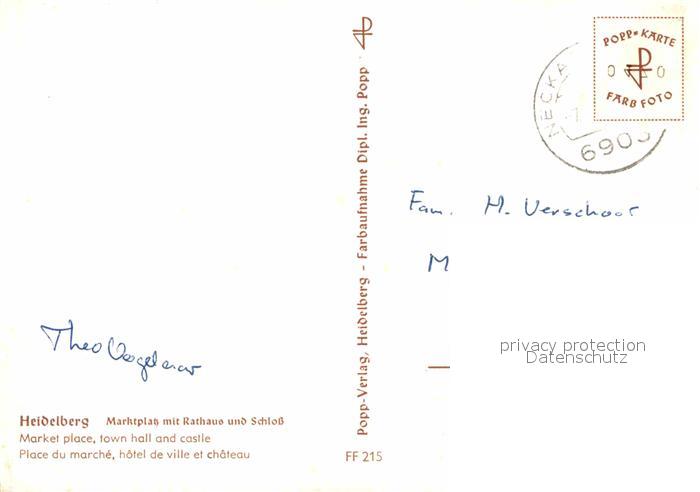 POPP-KARTE
0 0
FARB FOTO
NECKA
690
Fam. M. Verschoor
M
privacy protection
Datenschutz
Theo
Popp-Verlag, Heidelberg - Farbaufnahme Dipl. Ing. Popp
Heidelberg Marktplatz mit Rathaus und Schloß
Market place, town hall and castle
Place du marché, hôtel de ville et château
FF 215